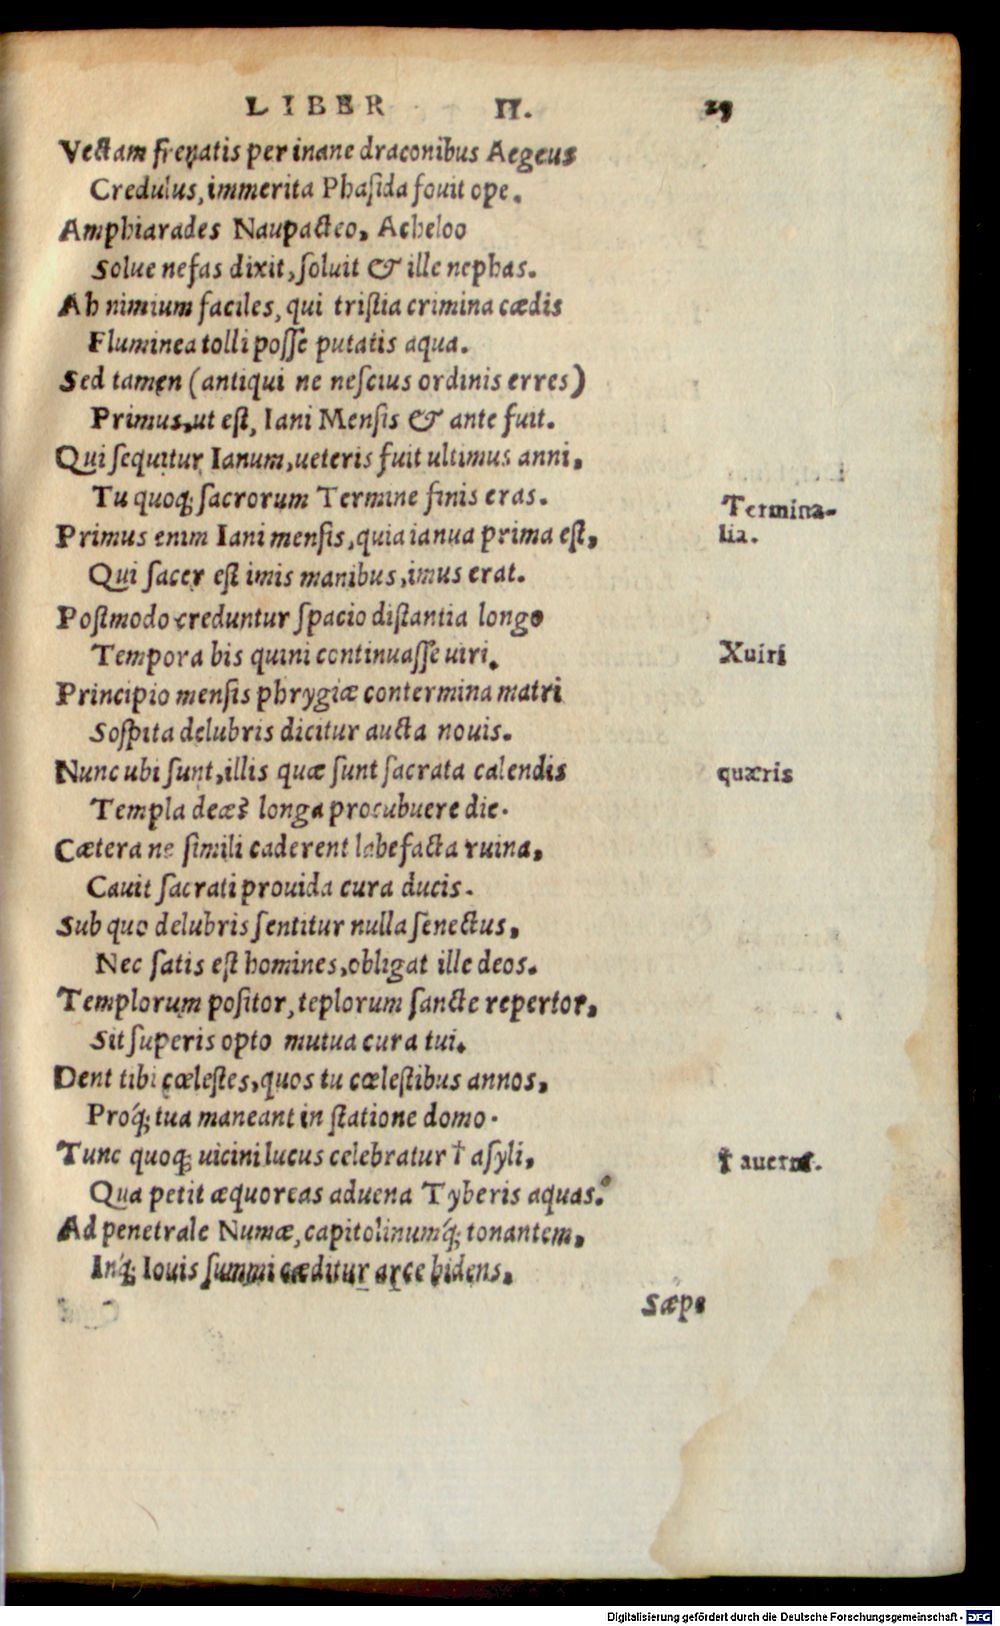 LIBER II. 29
Vectam frenatis per inane draconibus Aegeus
Credulus, immerita Phasida fouit ope.
Amphiarades Naupacteo, Acheloo
Solue nefas dixit, soluit & ille nephas.
Ah nimium faciles, qui tristia crimina cædis
Fluminea tolli posse putatis aqua.
Sed tamen (antiqui ne nescius ordinis erres)
Primus, ut est, Iani Mensis & ante fuit.
Qui sequitur Ianum, ueteris fuit ultimus anni,
Tu quoq; sacrorum Termine finis eras.
Termina-
lia.
Primus enim Iani mensis, quia ianua prima est,
Qui sacer est imis manibus, imus erat.
Postmodo creduntur spacio distantia longo
Tempora bis quini continuasse uiri.
Xuiri
Principio mensis phrygiæ contermina matri
Sospita delubris dicitur aucta nouis.
Nunc ubi sunt, illis quæ sunt sacrata calendis
quæris
Templa deæ? longa procubuere die.
Cætera ne simili caderent labefacta ruina,
Cauit sacrati prouida cura ducis.
Sub quo delubris sentitur nulla senectus,
Nec satis est homines, obligat ille deos.
Templorum positor, teplorum sancte repertor,
Sit superis opto mutua cura tui.
Dent tibi cœlestes, quos tu cœlestibus annos,
Proq́; tua maneant in statione domo.
Tunc quoq; uicini lucus celebratur † asyli,
† auerni.
Qua petit æquoreas aduena Tyberis aquas.
Ad penetrale Numæ, capitolinumq́; tonantem,
Inq́; Iouis summi cæditur arce bidens.
Sæpe
Digitalisierung gefördert durch die Deutsche Forschungsgemeinschaft - DFG